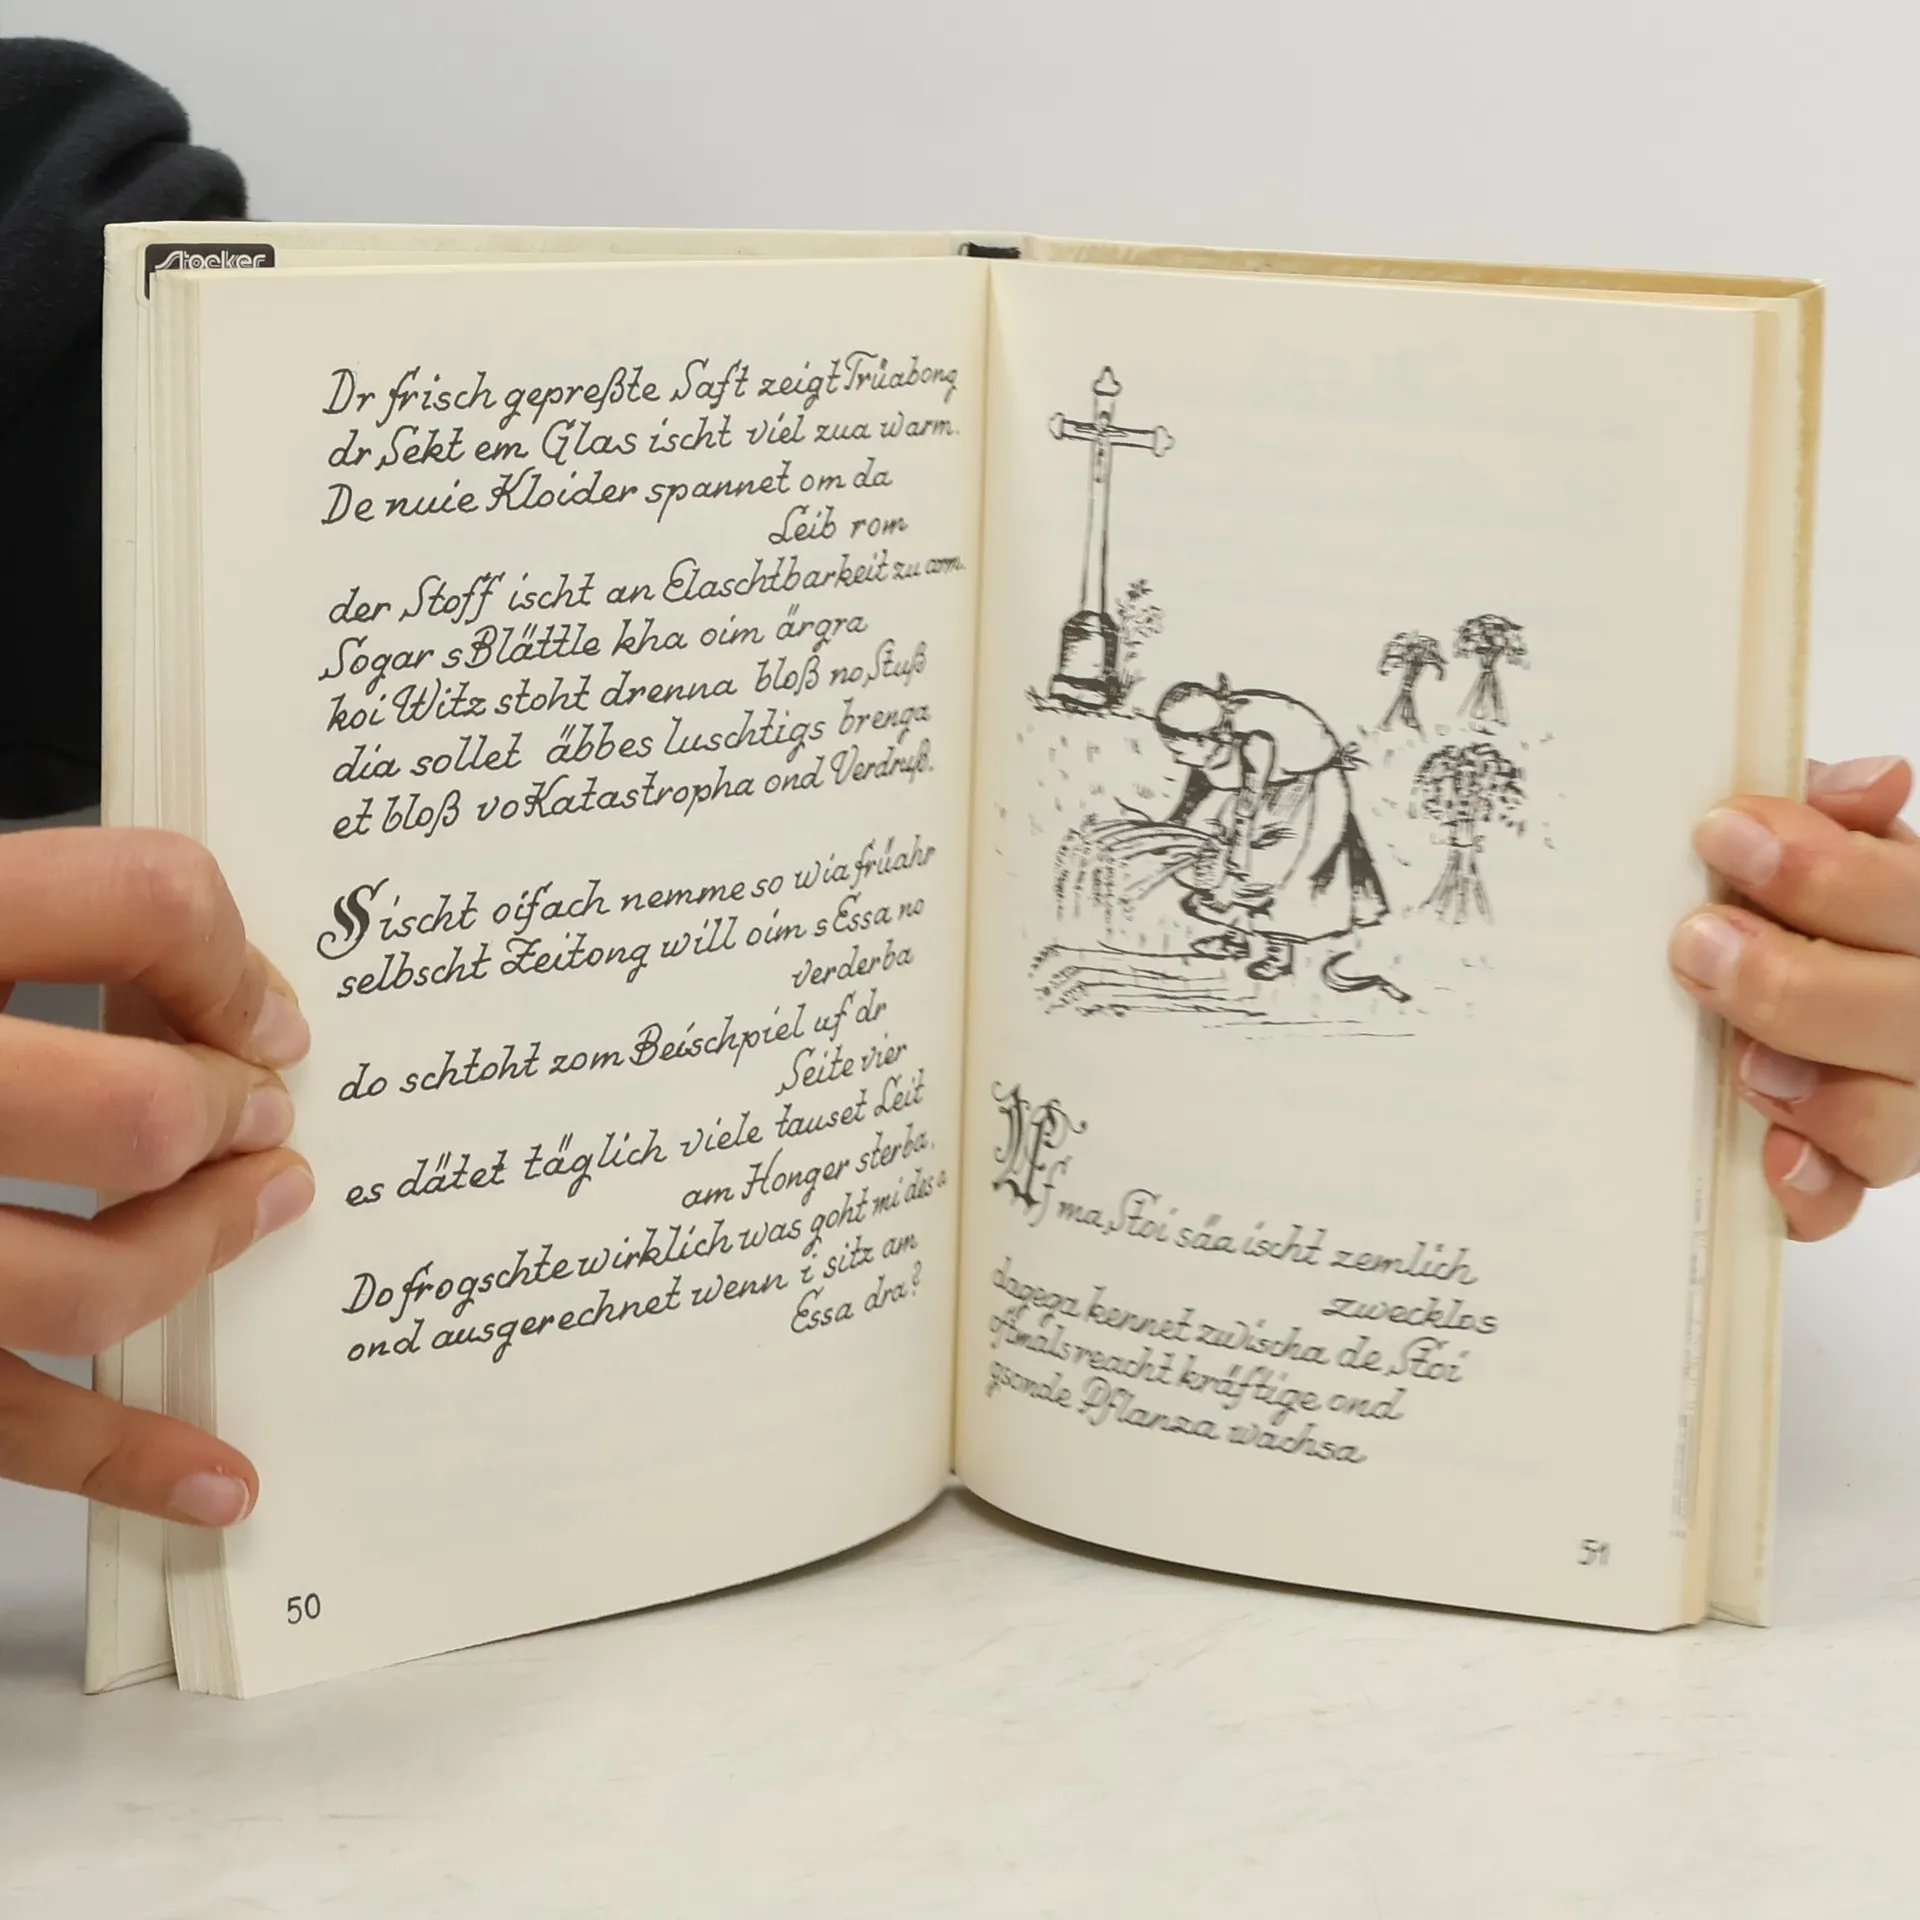 Stocker
Dr frisch gepreßte Saft zeigt Trüabong
dr Sekt em Glas ischt viel zua warm.
De nuie Kloider spannet om da
Leib rom
der Stoff ischt an Elaschtbarkeit zu arm.
Sogar s Blättle kha oim ärgra
koi Witz stoht drenna bloß no Stuß
dia sollet äbbes luschtigs brenga
et bloß vo Katastropha ond Verdruß.
S ischt oifach nemme so wia früahr
selbscht Zeitong will oim s Essa no
verderba
do schtoht zom Beischpiel uf dr
Seite vier
es dätet täglich viele tauset Leit
am Honger sterba.
Do frogschte wirklich was goht mi des a
ond ausgerechnet wenn i sitz am
Essa dra?
50
Uf ma Stoi säa ischt zemlich
zwecklos
dagega kennet zwischa de Stoi
oftmals reacht kräftige ond
gsonde Pflanza wachsa
51